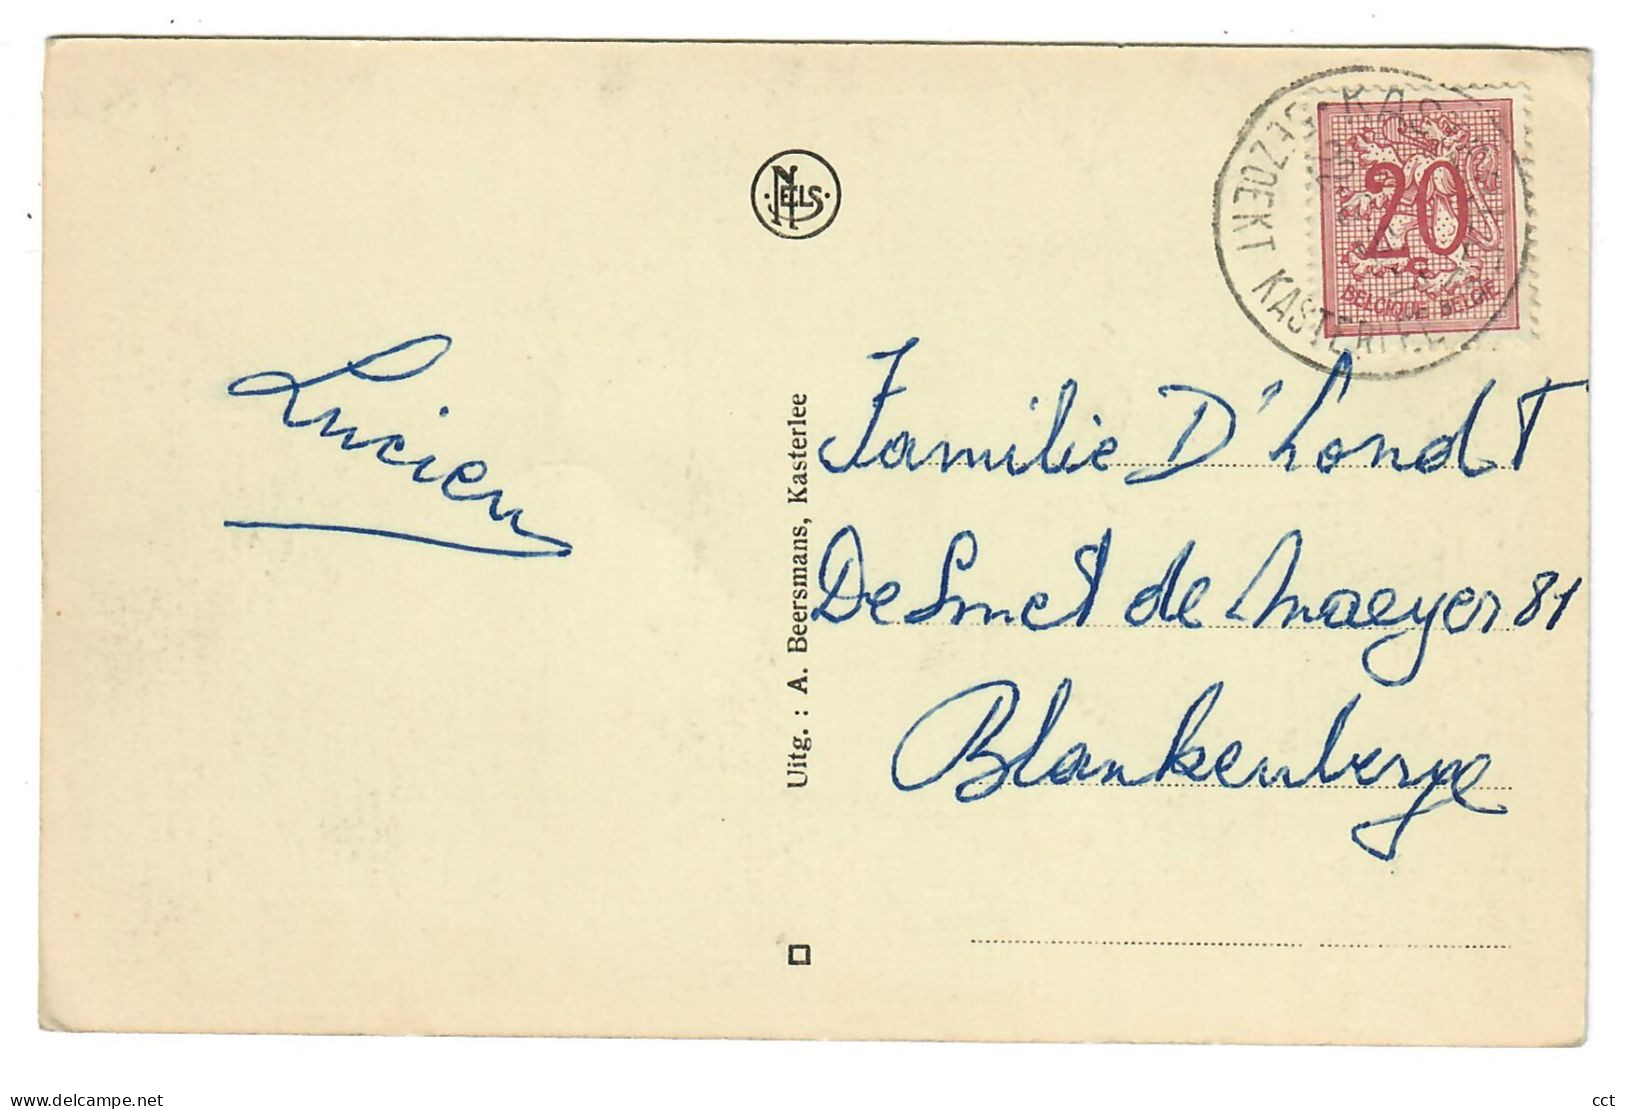 KASTERLEE
BEZOEKT KASTERLEE
20
BELGIQUE BELGIË
NELS
Lucien
Uitg. : A. Beersmans, Kasterlee
Familie D'hondt
De Smet de Maeyer 81
Blankenberge
www.delcampe.net
cct